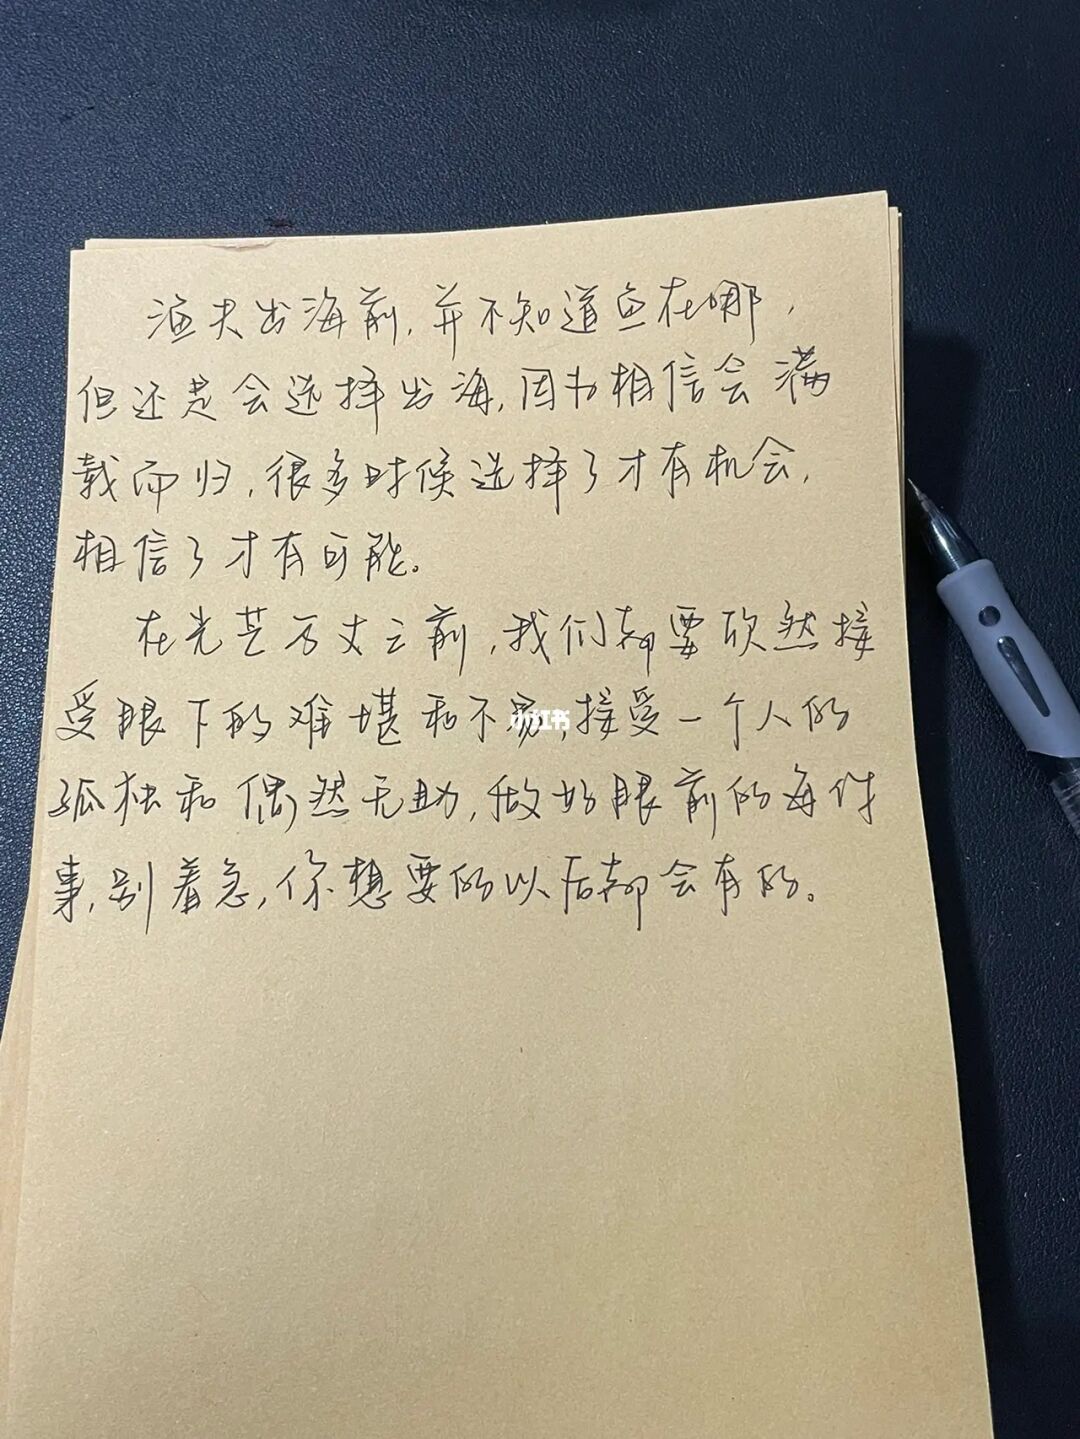 渔夫出海前,并不知道鱼在哪,
但还是会选择出海,因为相信会满
载而归,很多时候选择了才有机会,
相信了才有可能。
在光芒万丈之前,我们都要欣然接
受眼下的难堪和不易,接受一个人的
小红书
孤独和偶然无助,做好眼前的每件
事,别着急,你想要的以后都会有的。